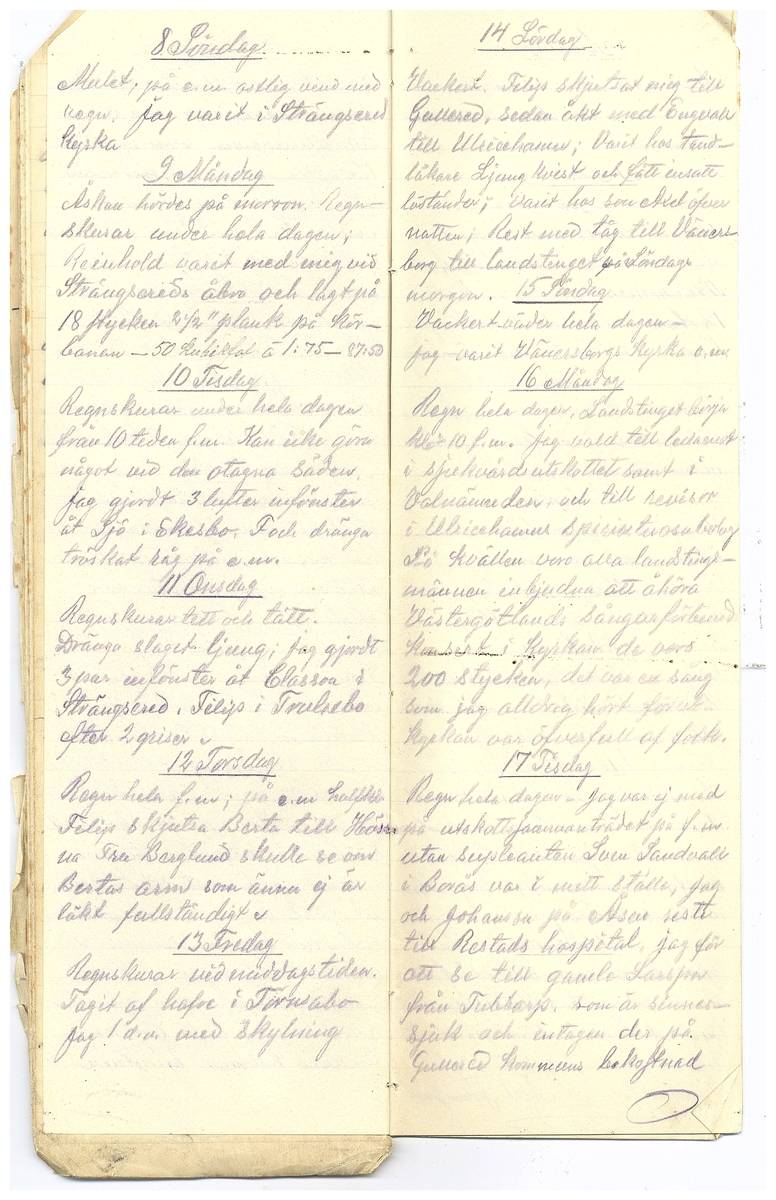 8 Söndag
Mulet, på e.m. ostlig vind med
regn. Jag varit i Strängsered
Kyrka
9 Måndag
Åskan hördes på morron. Regn-
skurar under hela dagen;
Reinhold varit med mig vid
Strängsereds åbro och lagt på
18 stycken 2 1/2" plank på Kör-
banan – 50 Kubikfot á 1:75 – 87:50
10 Tisdag.
Regnskurar under hela dagen
från 10 tiden f.m. Kan icke göra
något vid den otagna Säden.
Jag gjordt 3 lufter infönster
åt Sjö i Ekesbo. F och dränga
tröskat råg på e.m.
11 Onsdag
Regnskurar tett och tätt.
Dränga slaget ljung; jag gjordt
3 par infönster åt Classon i
Strängsered. Filip i Trulsebo
efter 2 griser
12 Torsdag
Regn hela f.m; på e.m halfkl.
Filip skjutsa Berta till
na Fru Berglund skulle se om
Bertas arm som ännu ej är
läkt fullständigt
13 Fredag
Regnskurar vid middagstiden.
Tagit af hafre i Törnsabo
Jag 1 d.v. med Skylning
14 Lördag
Vackert. Filip skjutsat mig till
Gullered, sedan åkt med Engvall
till Ulricehamn; Varit hos tand-
läkare Ljungkvist och fått insatt
löständer; varit hos son Axel öfver
natten; Rest med tåg till Väners-
borg till landstinget på Söndags
morgon. 15 Söndag
Vackert väder hela dagen –
jag varit Vänersborgs Kyrka o.m
16 Måndag
Regn hela dagen, Landstinget börja
klo 10 f.m. Jag vald till ledamot
i sjukvårdsutskottet samt i
Valnämnden, och till revisor
i Ulricehamns
På kvällen voro alla landstings-
männen inbjudna att åhöra
Västergötlands Sångarförbund
Konsert i Kyrkan de voro
200 stycken, det var en sång
som jag alldrig hört förut –
Kyrkan var öfverfull af folk.
17 Tisdag
Regn hela dagen – Jag var ej med
på utskottsammanträdet på f.m
utan supleanten Sven Sandvall
i Borås var i mitt ställe, Jag
och Johansson på Åsen reste
till Restads hospital, jag för
att se till gamle Larsson
från Tubbarp, som är sinnes-
sjuk och intagen der på
Gullered kommuns bekostnad